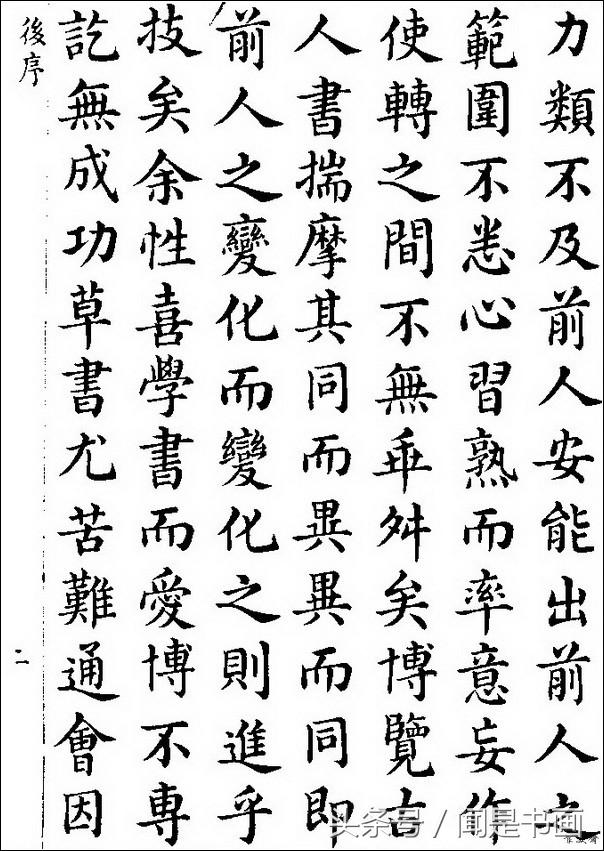 力類不及前人安能出前人之
範圍不悉心習熟而率意妄作
使轉之間不無乖舛矣博覽古
人書揣摩其同而異異而同即
前人之變化而變化之則進乎
技矣余性喜學書而愛博不專
訖無成功草書尤苦難通會因
後序
二
头条号/闻是书画